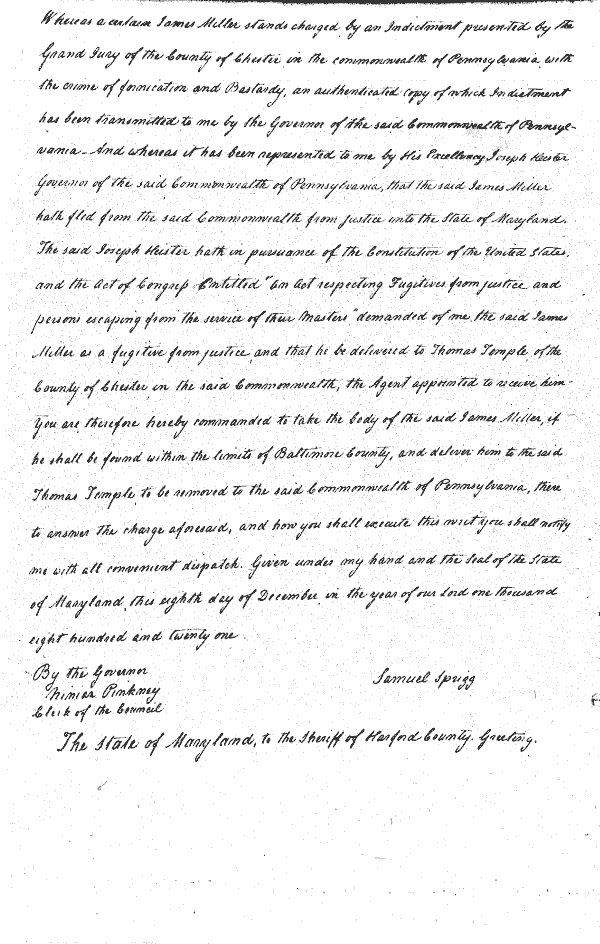 Whereas a certain James Miller stands charged by an Indictment presented by the
Grand Jury of the County of Chester in the commonwealth of Pennsylvania with
the crime of fornication and Bastardy, an authenticated copy of which Indictment
has been transmitted to me by the Governor of the said Commonwealth of Pennsyl-
vania - And whereas it has been represented to me by His Excellency Joseph Heister
Governor of the said Commonwealth of Pennsylvania, that the said James Miller
hath fled from the said Commonwealth from justice into the State of Maryland.
The said Joseph Heister hath in pursuance of the Constitution of the United States,
and the Act of Congress Entitled "An Act respecting Fugitives from justice and
persons escaping from the service of their Masters" demanded of me the said James
Miller as a fugitive from justice and that he be delivered to Thomas Temple of the
County of Chester in the said Commonwealth, the Agent appointed to receive him-
You are therefore hereby commanded to take the body of the said James Miller, if
he shall be found within the limits of Baltimore County, and deliver him to the said
Thomas Temple to be removed to the said Commonwealth of Pennsylvania, there
to answer the charge aforesaid, and how you shall execute this writ you shall notify
me with all convenient dispatch. Given under my hand and the Seal of the State
of Maryland this eighth day of December in the year of our Lord one thousand
eight hundred and twenty one
By the Governor
Samuel Sprigg
Ninian Pinkney
Clerk of the Council
The State of Maryland, to the Sheriff of Harford County. Greeting.